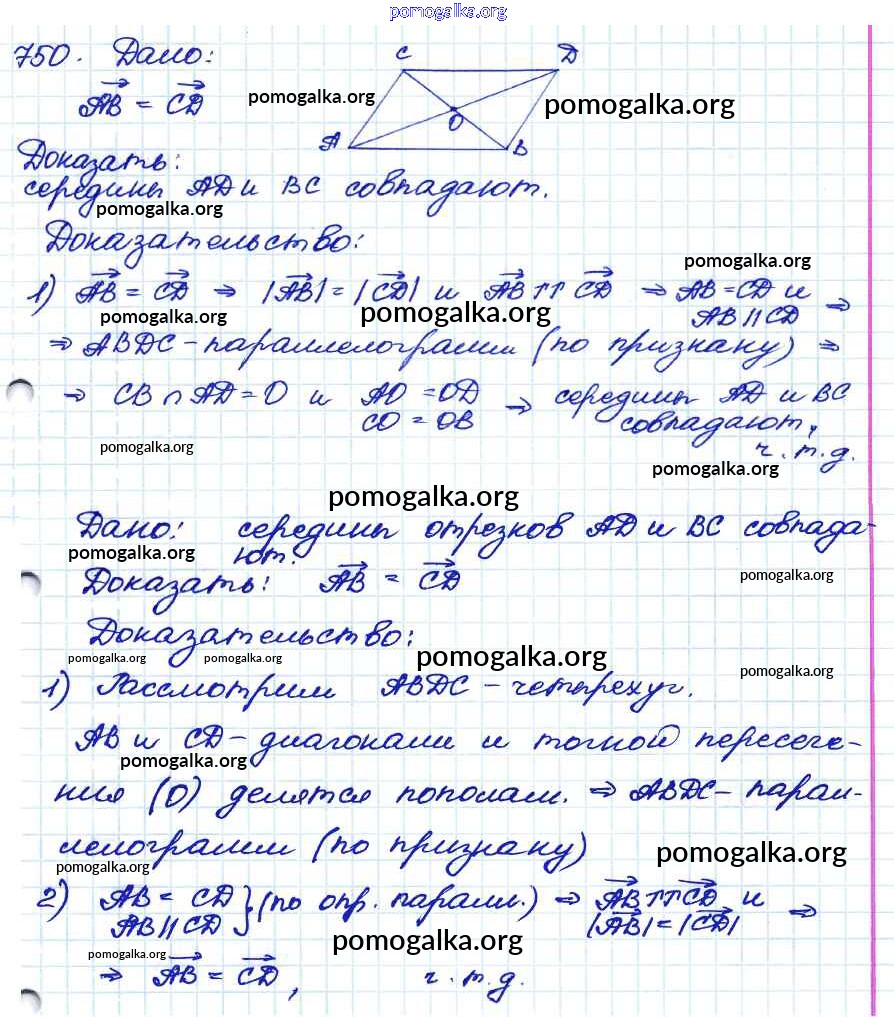 pomogalka.org
750. Дано:
C D
AB = CD
pomogalka.org
pomogalka.org
O
A B
Доказать:
середины AD и BC совпадают.
pomogalka.org
Доказательство:
pomogalka.org
1) AB = CD ⇒ |AB| = |CD| и AB ↑↑ CD ⇒ AB = CD и
AB || CD ⇒
pomogalka.org pomogalka.org
⇒ ABDC - параллелограмм (по признаку) ⇒
⇒ CB ∩ AD = O и AO = OD ⇒ середины AD и BC
CO = OB совпадают,
ч.т.д.
pomogalka.org
pomogalka.org
pomogalka.org
Дано: середины отрезков AD и BC совпада-
ют.
pomogalka.org
Доказать: AB = CD
pomogalka.org
Доказательство:
pomogalka.org pomogalka.org pomogalka.org
pomogalka.org
1) Рассмотрим ABDC - четырехуг.
AB и CD - диагонали и точкой пересече-
pomogalka.org
ния (O) делятся пополам. ⇒ ABDC - парал-
лелограмм (по признаку)
pomogalka.org
pomogalka.org
2) AB = CD } (по опр. паралл.) ⇒ AB ↑↑ CD и
AB || CD |AB| = |CD| ⇒
pomogalka.org
pomogalka.org
⇒ AB = CD, ч.т.д.